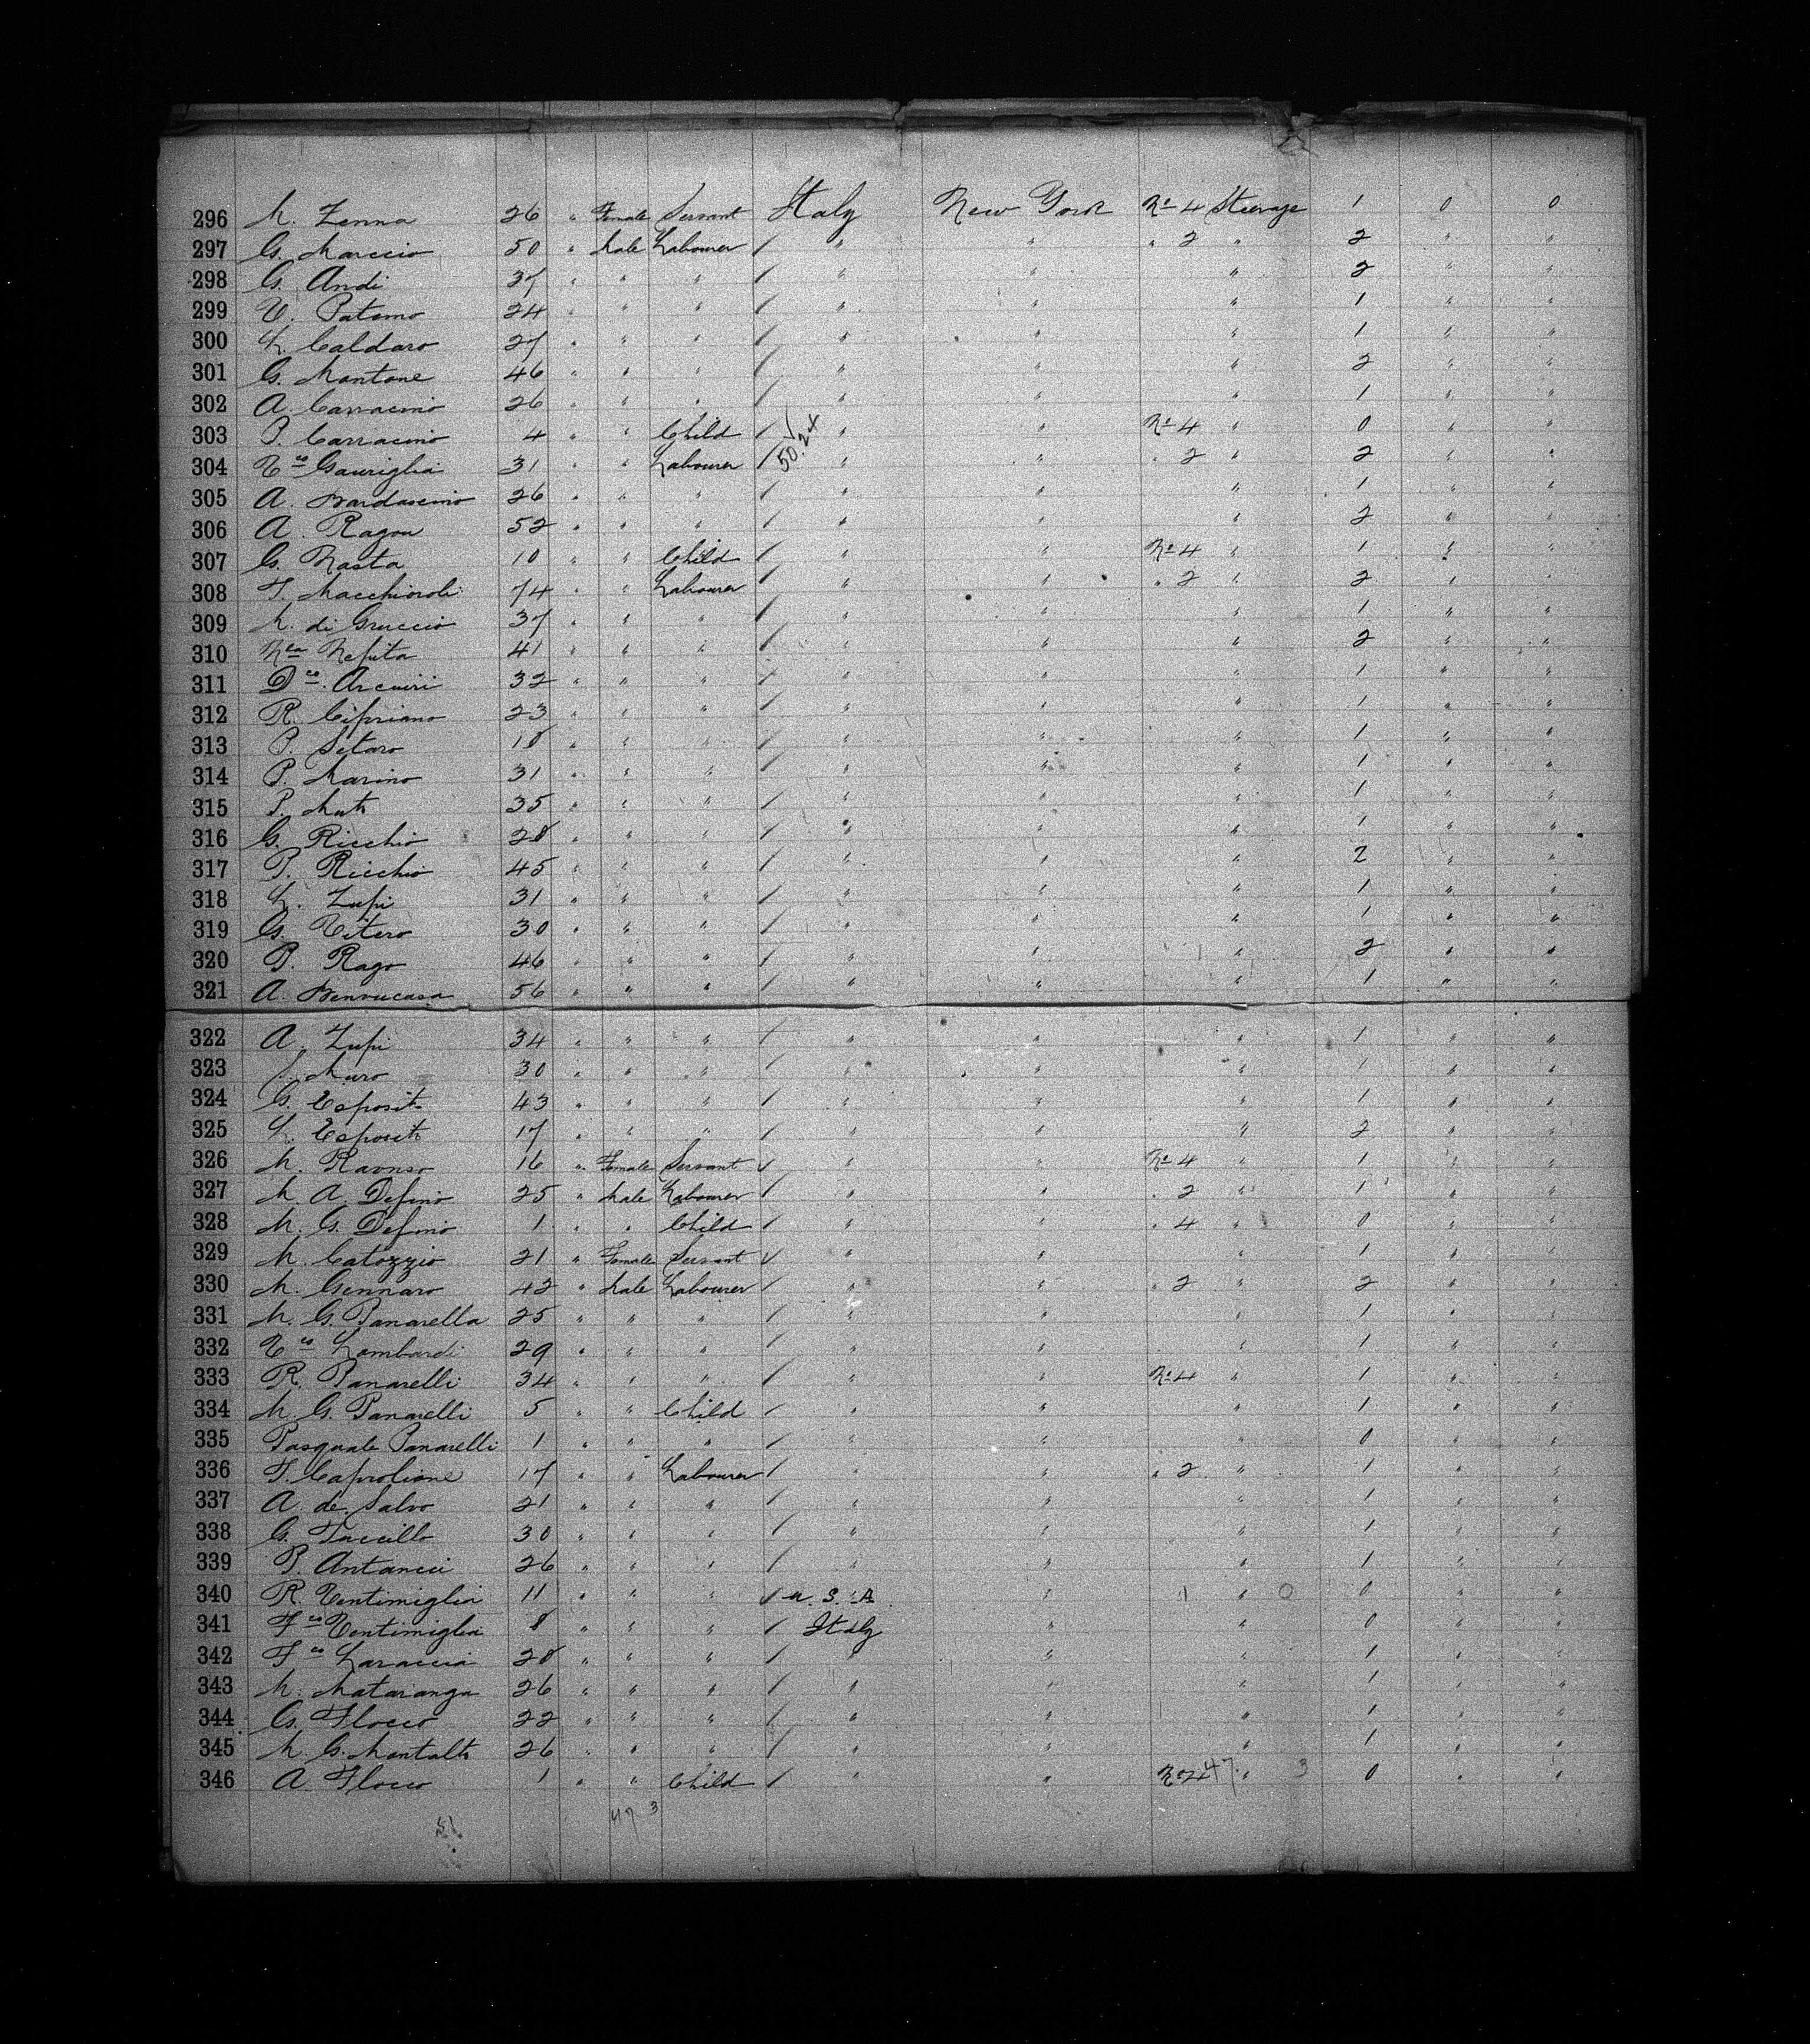 296 M. Zenna 26 " Female Servant Italy New York No 4 Steerage 1 0 0
297 G. Marccio 50 " Male Labourer / " " " 2 " 2 " "
298 G. Andi 37 " " " / " " " 2 " "
299 V. Paterno 24 " " " / " " " 1 " "
300 L. Caldaro 27 " " " / " " " 1 " "
301 G. Montone 46 " " " / " " " 2 " "
302 A. Carracino 26 " " " / " " " 1 " "
303 P. Carracino 4 " " Child / " " No 4 " 0 " "
304 Vco Gauriglia 31 " " Labourer / 50.24 " " " 2 " 2 " "
305 A. Bardascino 26 " " " / " " " 1 " "
306 A. Ragou 52 " " " / " " " 2 " "
307 G. Nasta 10 " " Child / " " No 4 " 1 " "
308 F. Macchiaroli 74 " " Labourer / " " " 2 " 2 " "
309 M. di Gruccio 37 " " " / " " " 1 " "
310 Nla Nepita 41 " " " / " " " 2 " "
311 Dco Arcuiri 32 " " " / " " " 1 " "
312 R. Cipriano 23 " " " / " " " 1 " "
313 P. Setaro 18 " " " / " " " 1 " "
314 P. Marino 31 " " " / " " " 1 " "
315 P. Muto 35 " " " / " " " 1 " "
316 G. Ricchio 28 " " " / " " " 1 " "
317 P. Ricchio 45 " " " / " " " 2 " "
318 L. Zupi 31 " " " / " " " 1 " "
319 G. Vitero 30 " " " / " " " 1 " "
320 P. Rago 46 " " " / " " " 2 " "
321 A. Benvucasa 56 " " " / " " " 1 " "
322 A. Zupi 34 " " " / " " " 1 " "
323 Muro 30 " " " / " " " 1 " "
324 G. Esposito 43 " " " / " " " 1 " "
325 L. Esposito 17 " " " / " " " 2 " "
326 M. Raonso 16 " Female Servant / " " No 4 " 1 " "
327 M. A. Defino 25 " Male Labourer / " " " 2 " 1 " "
328 M. G. Defino 1 " " Child / " " " 4 " 0 " "
329 M. Catozzio 21 " Female Servant / " " " 1 " "
330 M. Gennaro 42 " Male Labourer / " " " 2 " 2 " "
331 M. G. Panarella 25 " " " / " " 1 " "
332 Vco Lombardi 29 " " " / " " " 1 " "
333 R. Panarelli 34 " " " / " " No 4 " 1 " "
334 M. G. Panarelli 5 " " Child / " " " 1 " "
335 Pasquale Panarelli 1 " " " / " " " 0 " "
336 F. Caprolione 17 " " Labourer / " " " 2 " 1 " "
337 A. de Salvo 21 " " " / " " " 1 " "
338 G. Tuccillo 30 " " " / " " " 1 " "
339 P. Antancci 26 " " " / " " " 1 " "
340 R. Ventimiglia 11 " " " / U. S. A. " 1 " 0 0 " "
341 Fco Ventimiglia 8 " " " / Italy " " 0 " "
342 Fco Laraccia 28 " " " / " " " 1 " "
343 M. Mataranga 26 " " " / " " " 1 " "
344 G. Flocco 22 " " " / " " " 1 " "
345 M. G. Montalto 26 " " " / " " " 1 " "
346 A Flocco 1 " " Child / " " No 24 47 " 3 0 " "
47 3